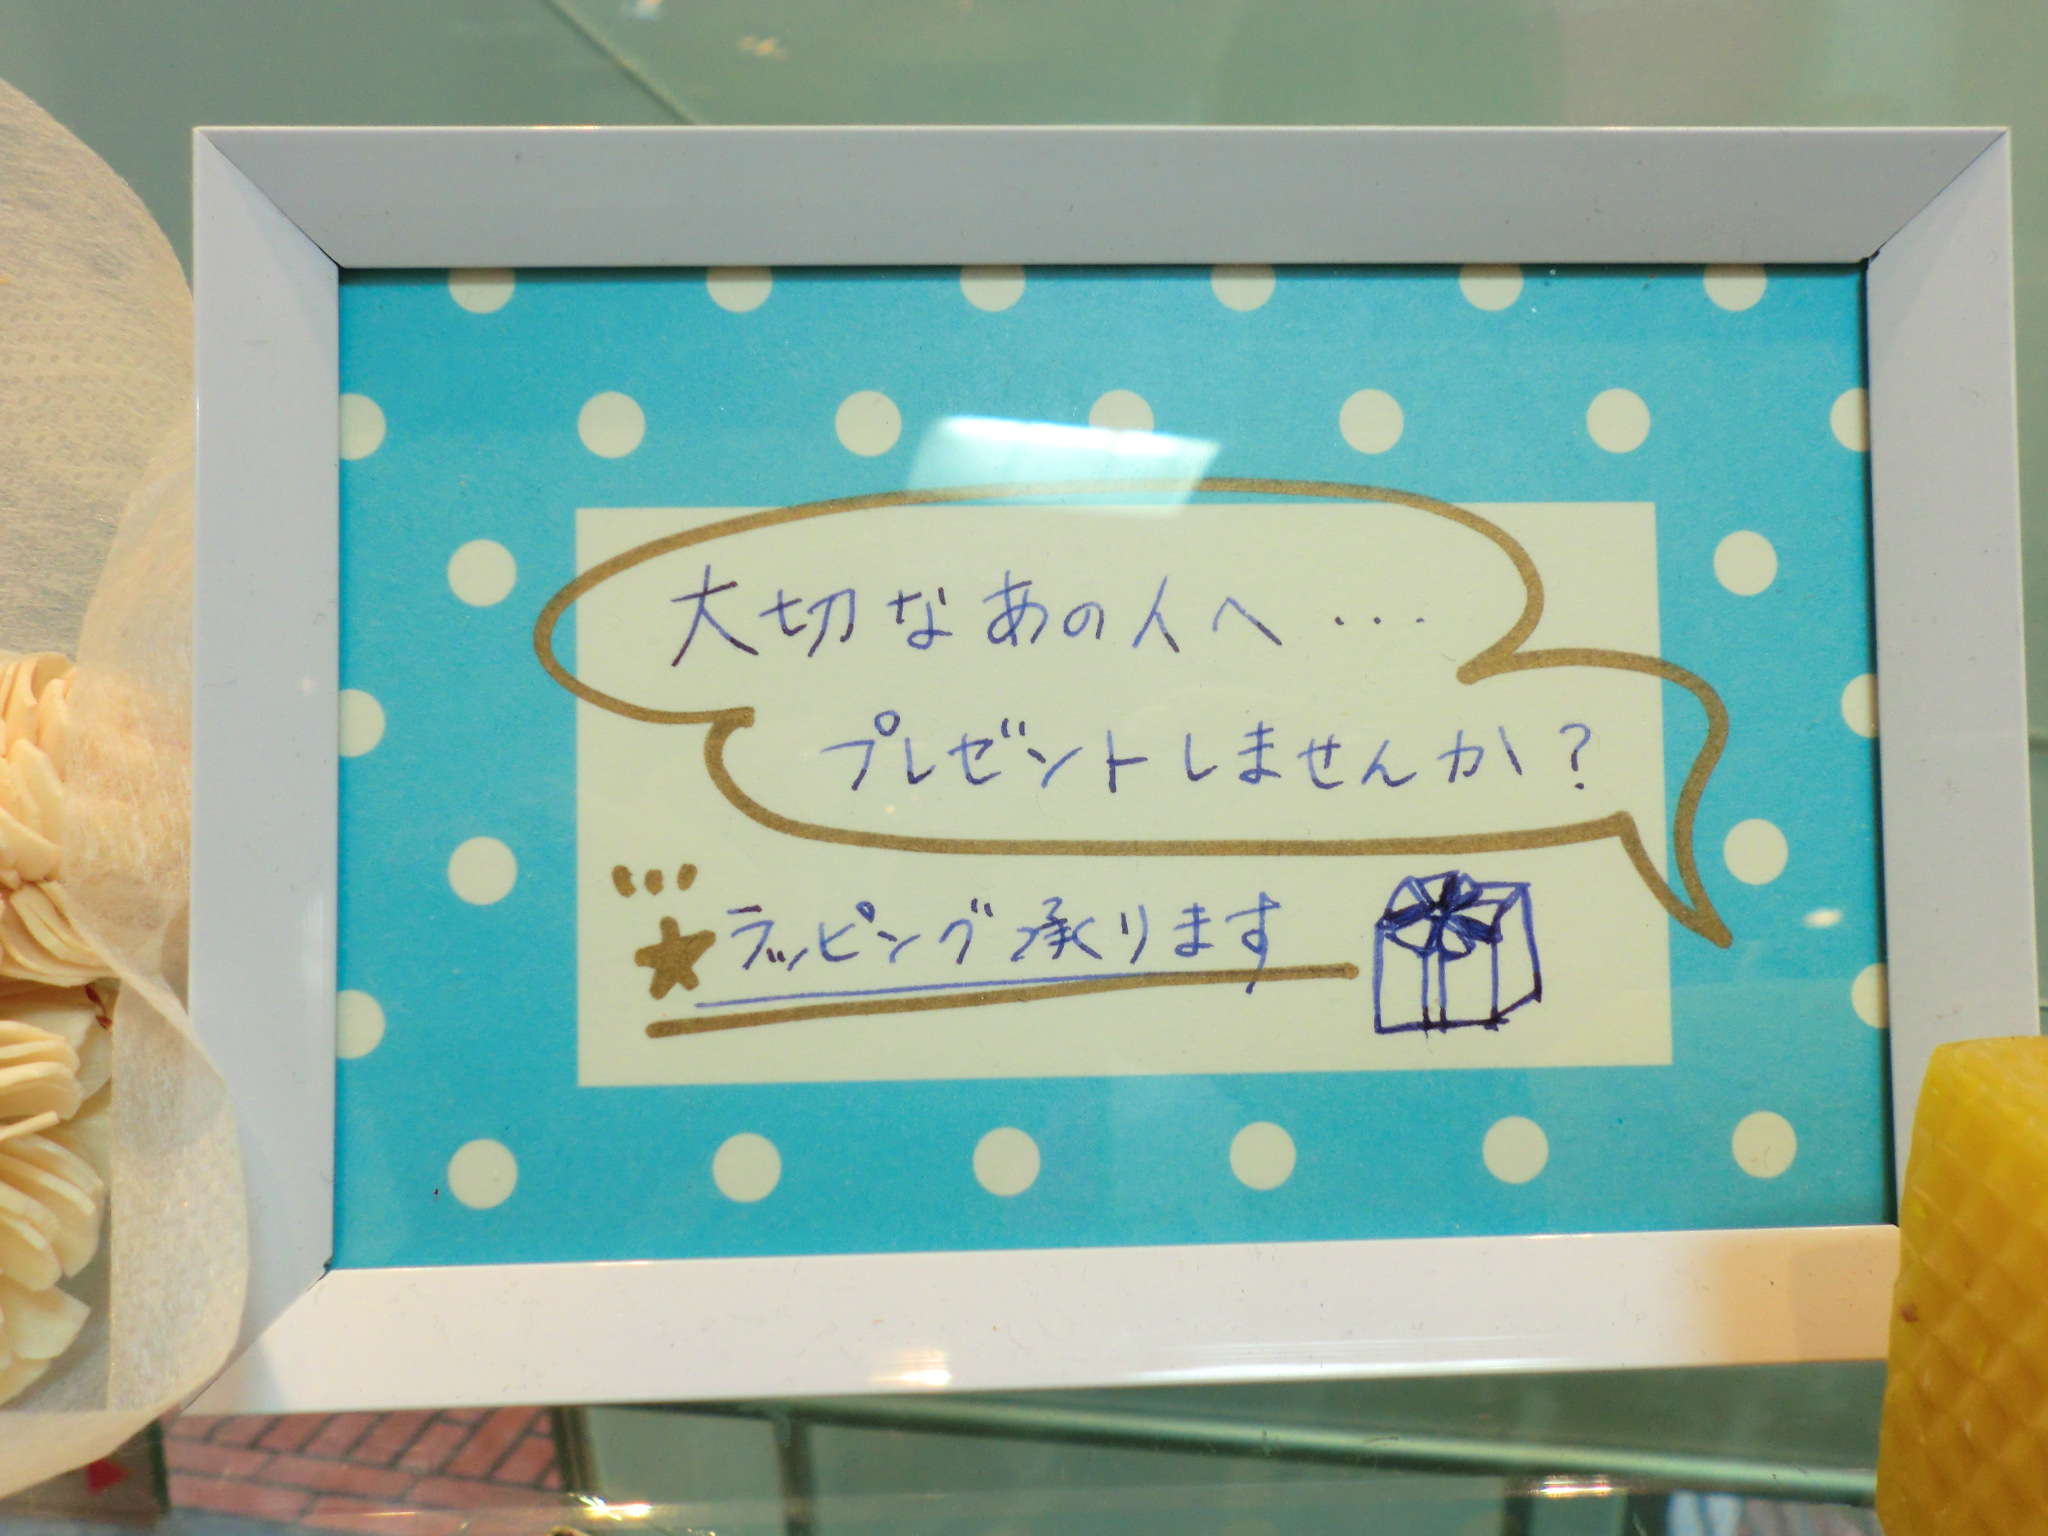 大切なあの人へ・・・
プレゼントしませんか?
★ラッピング承ります